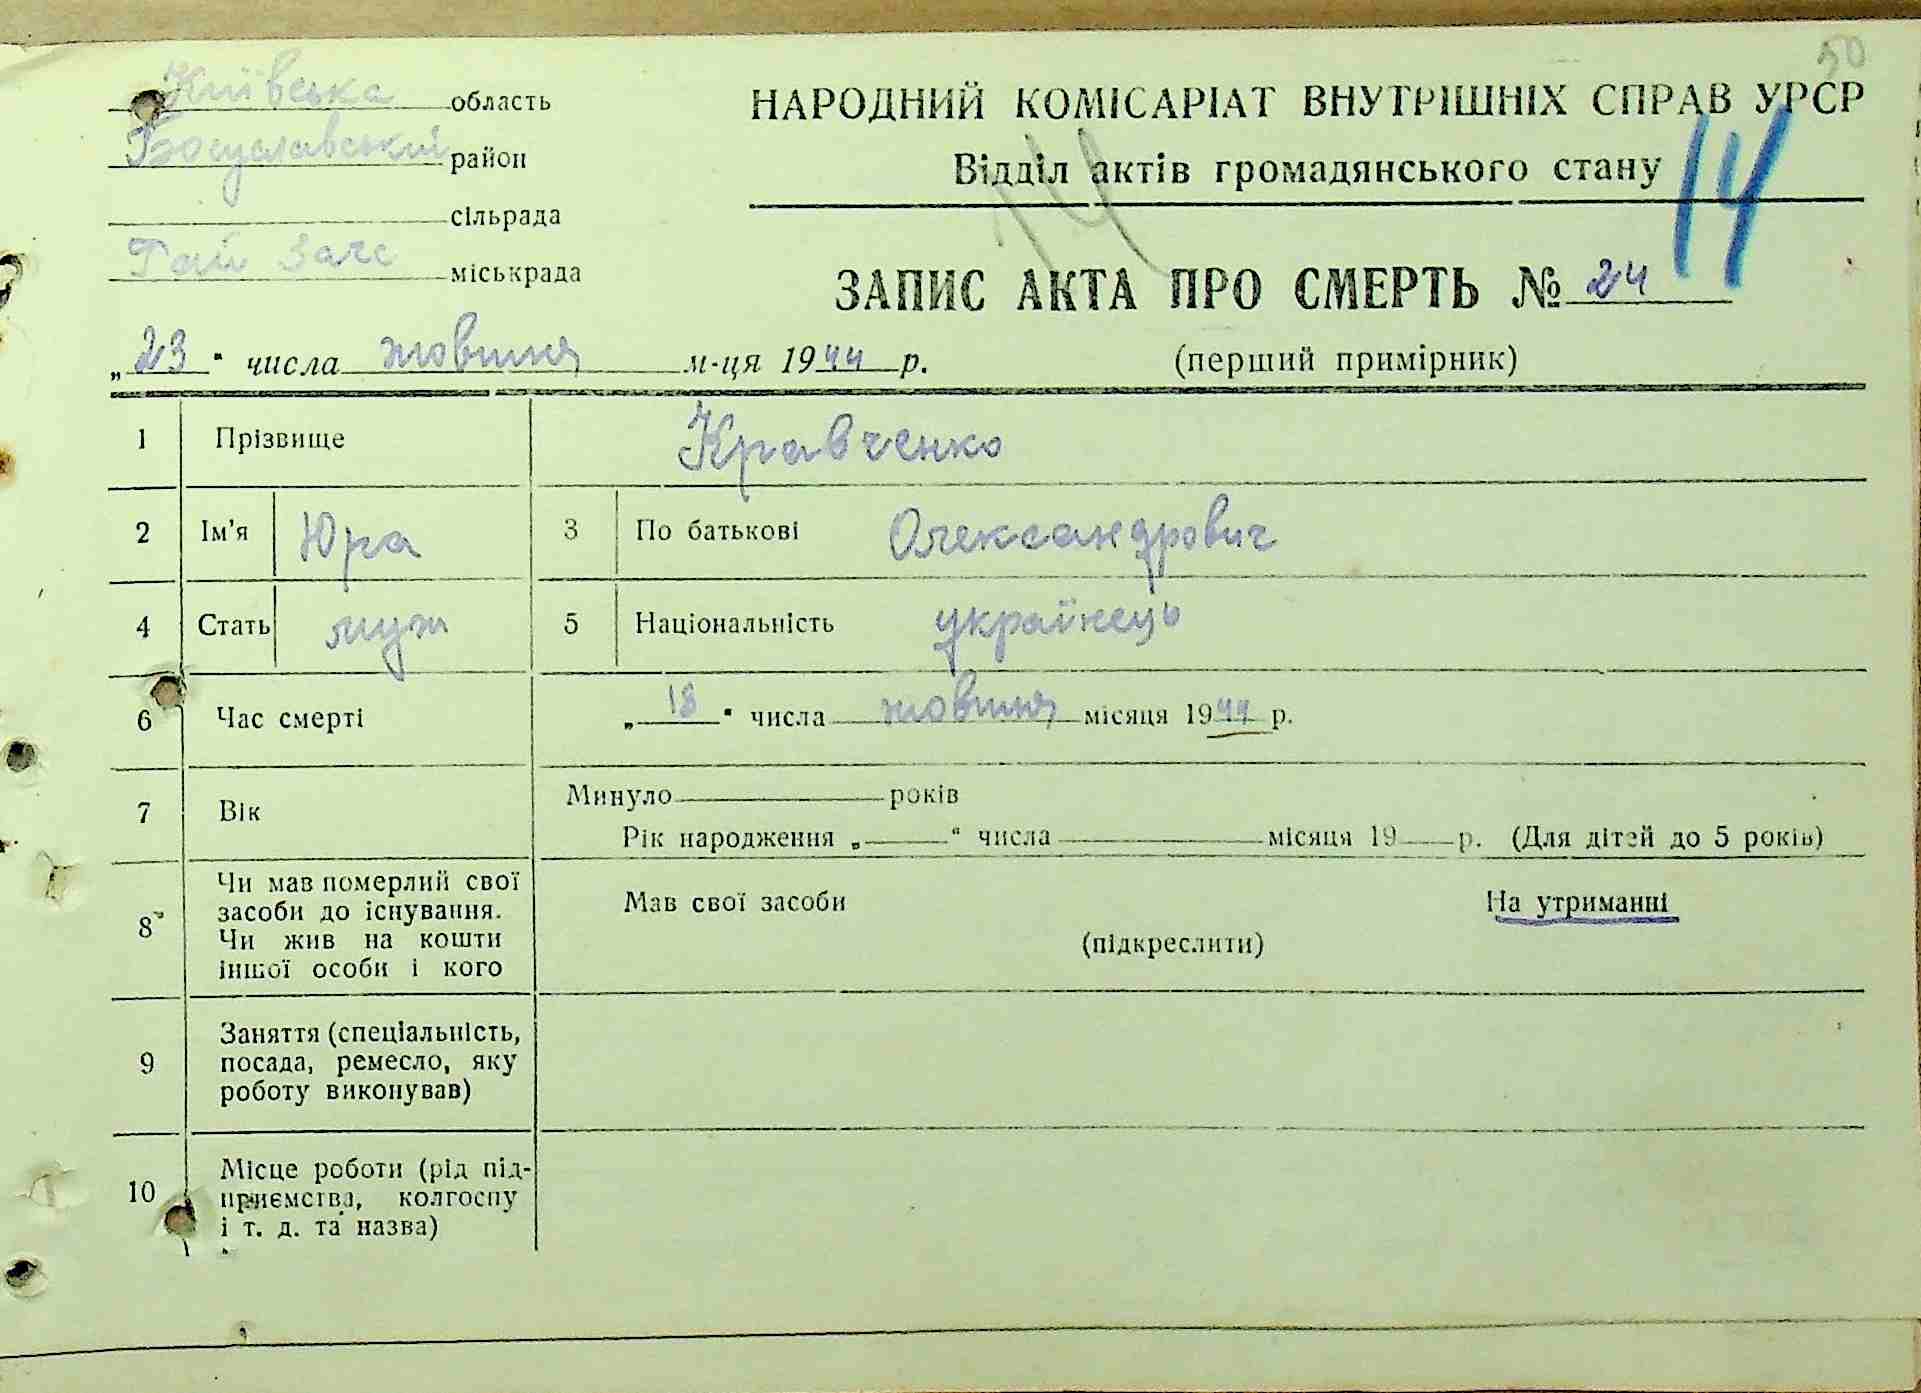 50
Київська область
Богуславський район
сільрада
Рай Загс міськрада
НАРОДНИЙ КОМІСАРІАТ ВНУТРІШНІХ СПРАВ УРСР
Відділ актів громадянського стану
14
14
ЗАПИС АКТА ПРО СМЕРТЬ № 24
„23" числа жовтня м-ця 1944 р.
(перший примірник)
1 Прізвище Кравченко
2 Ім'я Юра 3 По батькові Олександрович
4 Стать муж 5 Національність українець
6 Час смерті „18" числа жовтня місяця 1944 р.
7 Вік Минуло років
Рік народження „ " числа місяця 19 р. (Для дітей до 5 років)
8 Чи мав померлий свої
засоби до існування.
Чи жив на кошти
іншої особи і кого
Мав свої засоби На утриманні
(підкреслити)
9 Заняття (спеціальність,
посада, ремесло, яку
роботу виконував)
10 Місце роботи (рід під-
приємства, колгоспу
і т. д. та назва)